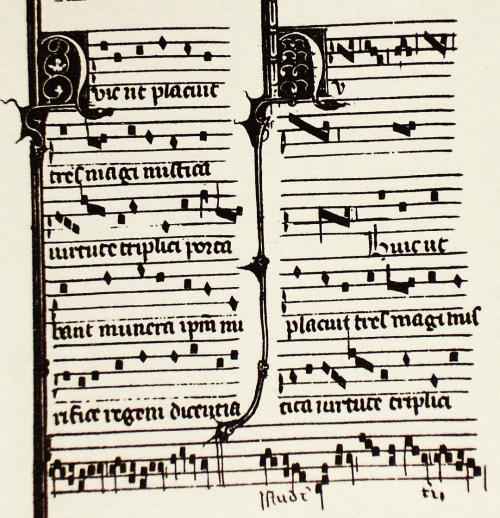 Huic ut placuit
tres magi mistica
uirtute triplici porta
bant munera ipm̄ mi
rifice regem dicentia
Hv
Huic ut
placuit tres magi mis
tica uirtute triplici